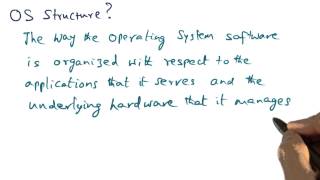 OS Structure?
The way the operating system software
is organized with respect to the
applications that it serves and the
underlying hardware that it manages